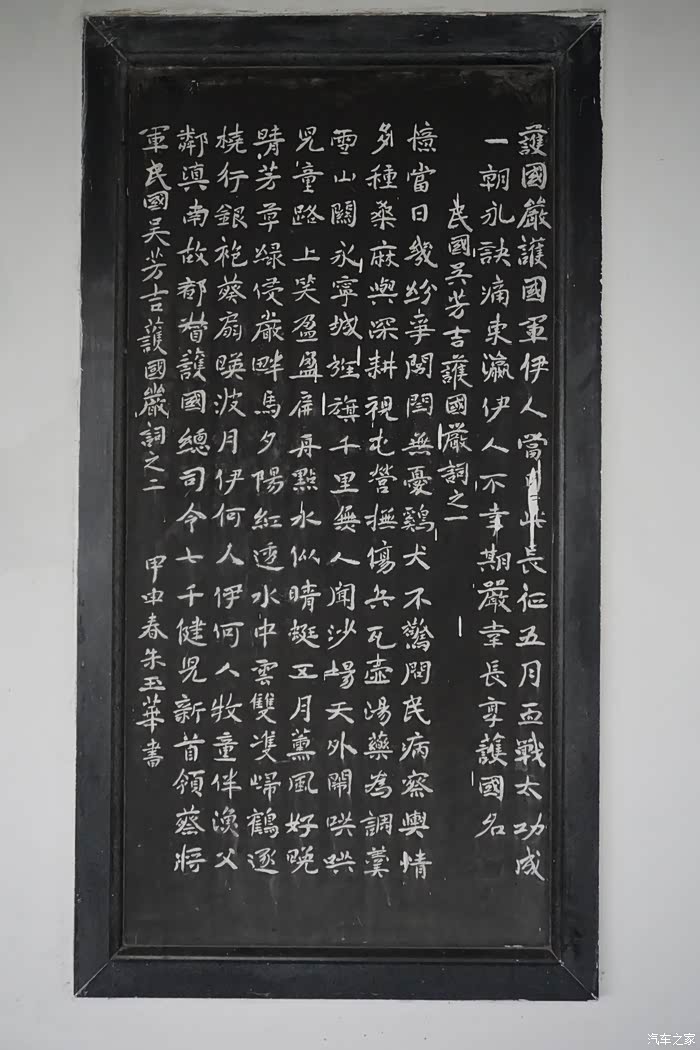 護國巖護國軍伊人當長征五月血戰大功成
一朝永訣痛東瀛伊人不幸期巖幸長享護國名
民國吳芳吉護國巖詞之一
憶當日幾紛爭閭閻無憂鷄犬不驚問民病察輿情
多種桑麻與深耕視屯營撫傷兵瓦壺湯藥為調羹
雪山關永寧城旌旗千里無人聞沙場天外鬧哄哄
兒童路上笑盈盈扁舟點水似晴蜓五月薰風好晚
晴芳草綠侵巖畔馬夕陽紅透水中雲雙雙歸鶴逐
橈行銀袍葵扇映波月伊何人伊何人牧童伴漁父
鄰滇南故都督護國總司令七千健兒新首領蔡將
軍民國吳芳吉護國巖詞之二 甲申春朱玉華書
汽车之家